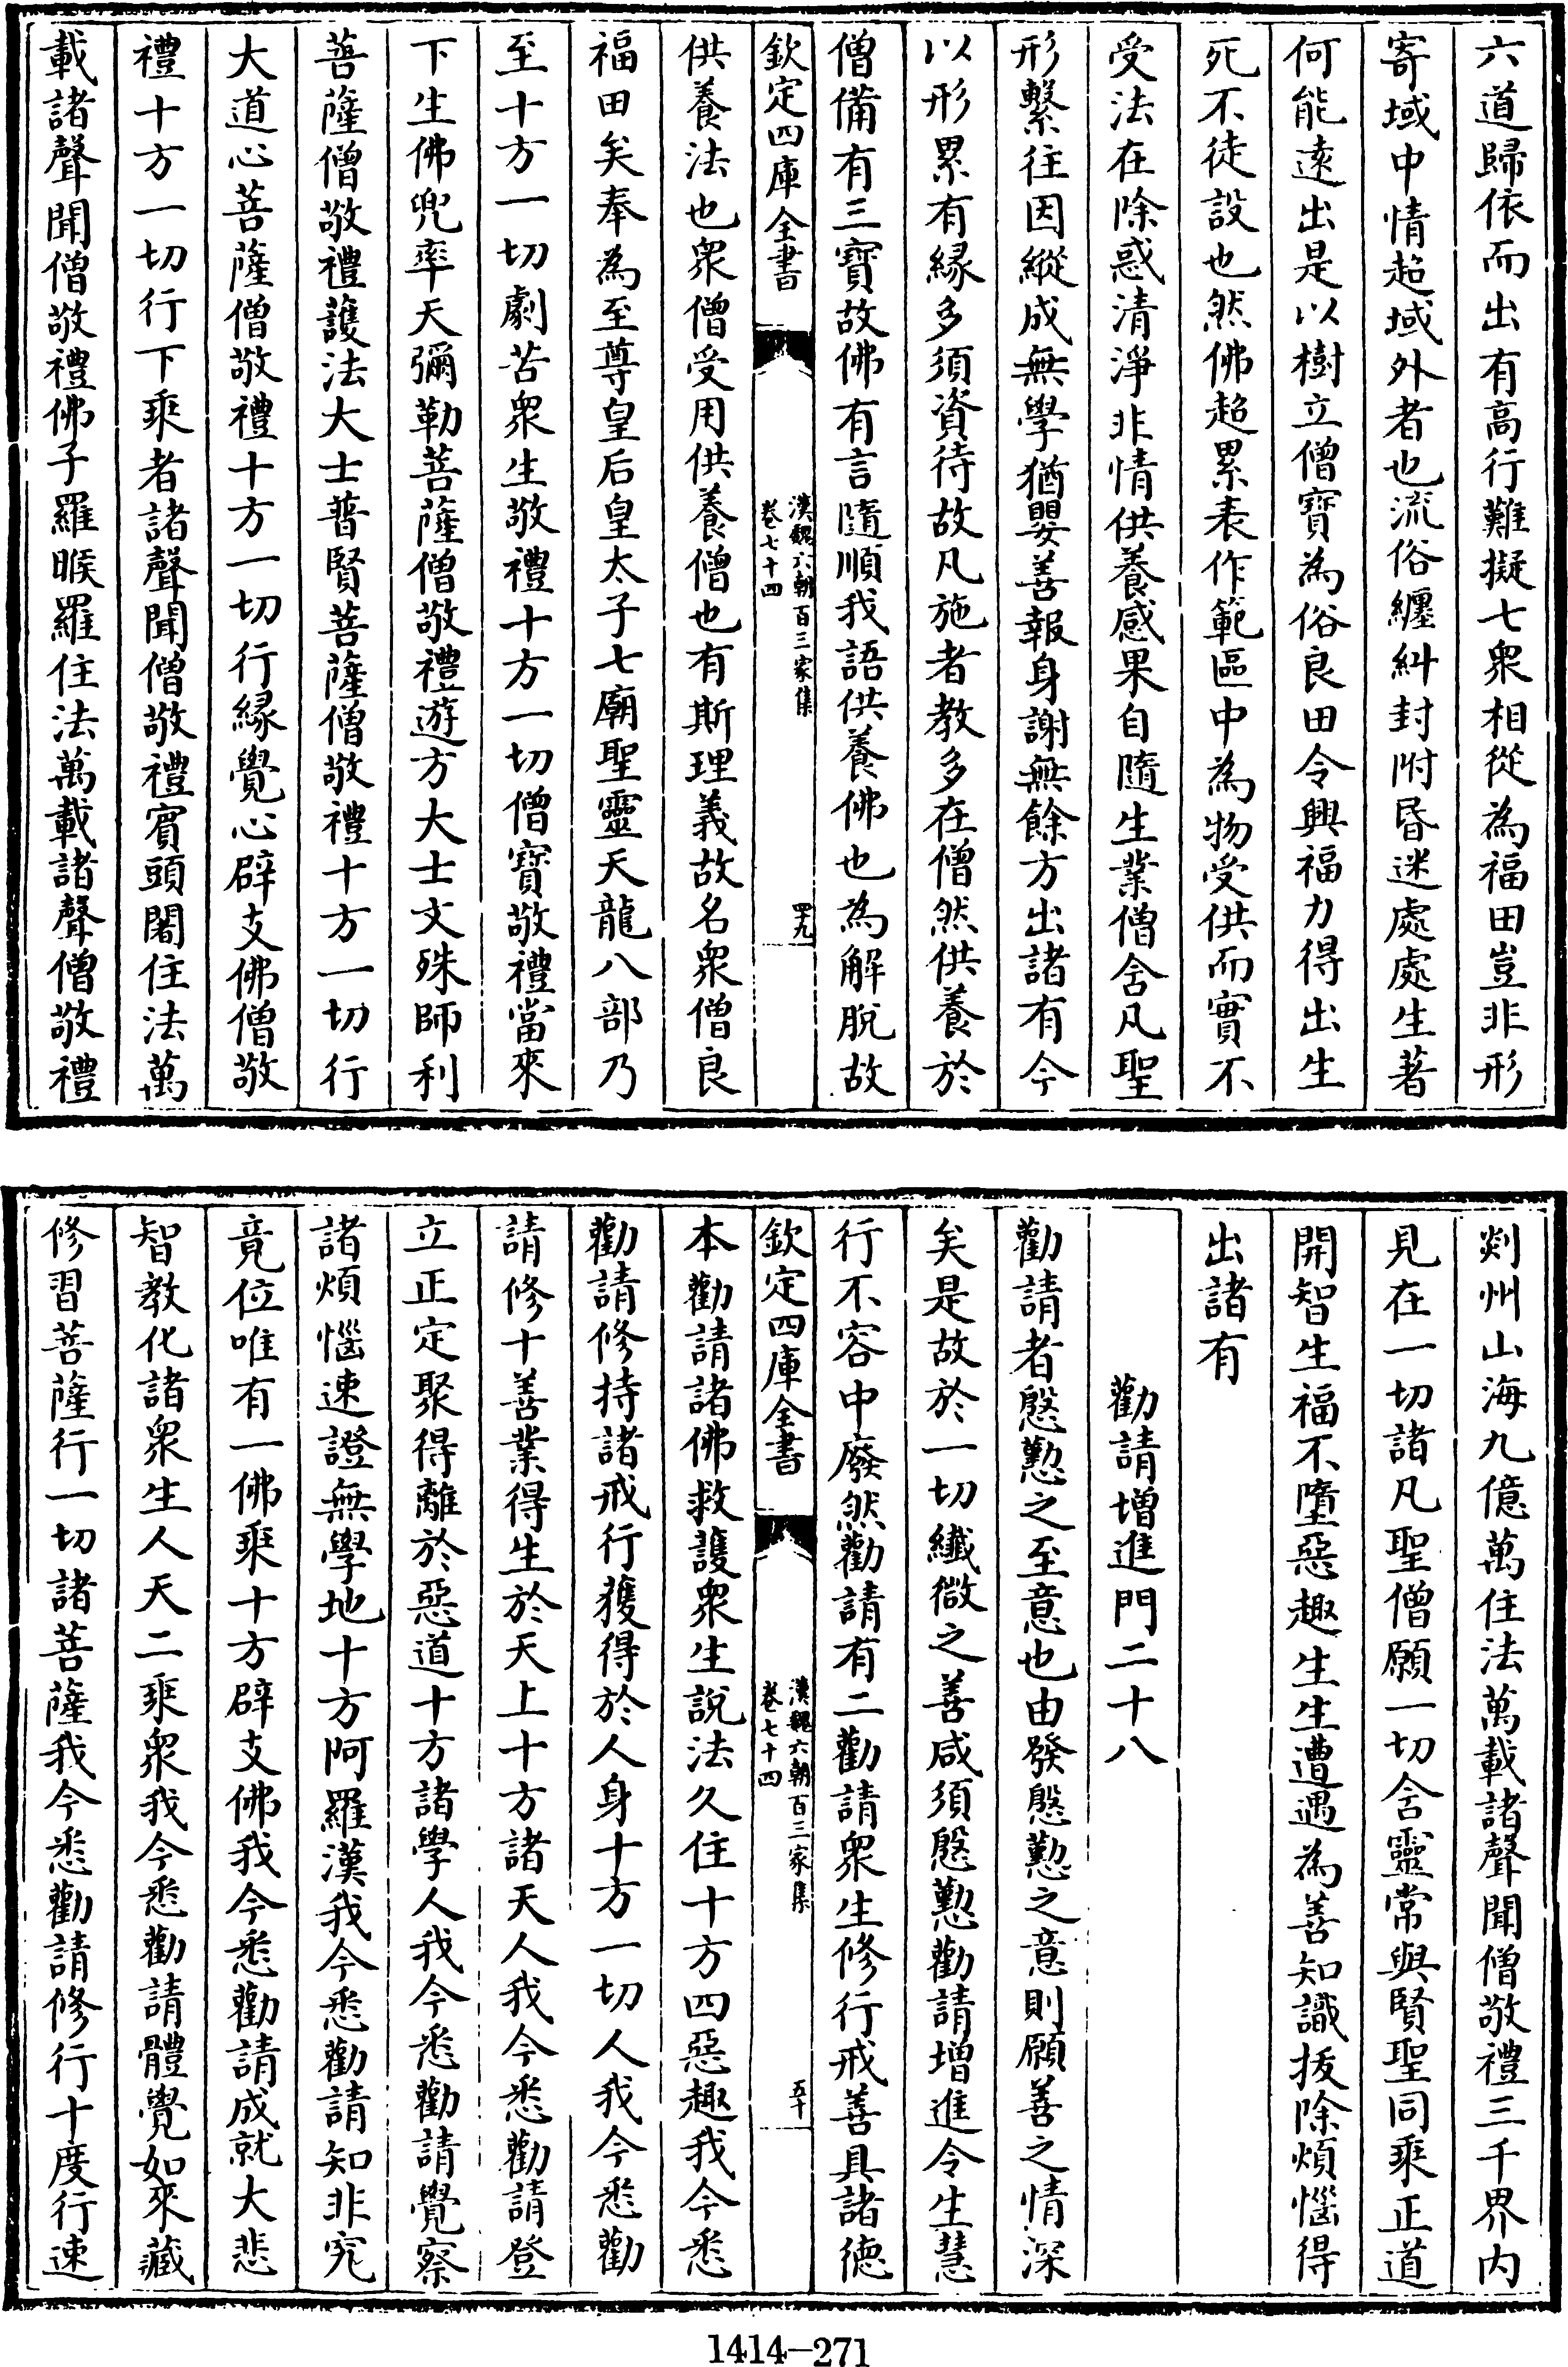 六道歸依而出有高行難擬七衆相從為福田豈非形
寄域中情超域外者也流俗纒糾封附昏迷處處生著
何能遠出是以樹立僧寶為俗良田令興福力得出生
死不徒設也然佛超累表作範區中為物受供而實不
受法在除惑清淨非情供養感果自隨生業僧舍凡聖
形繫往因縱成無學猶嬰善報身謝無餘方出諸有今
以形累有緣多須資待故凡施者教多在僧然供養於
僧備有三寶故佛有言隨順我語供養佛也為解脫故
欽定四庫全書
漢魏六朝百三家集
卷七十四
四九
供養法也衆僧受用供養僧也有斯理義故名衆僧良
福田矣奉為至尊皇后皇太子七廟聖靈天龍八部乃
至十方一切劇苦衆生敬禮十方一切僧寶敬禮當來
下生佛兜率天彌勒菩薩僧敬禮遊方大士文殊師利
菩薩僧敬禮護法大士普賢菩薩僧敬禮十方一切行
大道心菩薩僧敬禮十方一切行緣覺心辟支佛僧敬
禮十方一切行下乘者諸聲聞僧敬禮賓頭闍住法萬
載諸聲聞僧敬禮佛子羅睺羅住法萬載諸聲僧敬禮
剡州山海九億萬住法萬載諸聲聞僧敬禮三千界内
見在一切諸凡聖僧願一切舍靈常與賢聖同乘正道
開智生福不墮惡趣生生遭遇為善知識拔除煩惱得
出諸有
勸請增進門二十八
勸請者慇懃之至意也由發慇懃之意則願善之情深
矣是故於一切纎微之善咸須慇懃勸請增進令生慧
行不容中廢然勸請有二勸請衆生修行戒善具諸德
欽定四庫全書
漢魏六朝百三家集
卷七十四
五十
本勸請諸佛救護衆生說法久住十方四惡趣我今悉
勸請修持諸戒行獲得於人身十方一切人我今悉勸
請修十善業得生於天上十方諸天人我今悉勸請登
立正定聚得離於惡道十方諸學人我今悉勸請覺察
諸煩惱速證無學地十方阿羅漢我今悉勸請知非究
竟位唯有一佛乘十方辟支佛我今悉勸請成就大悲
智教化諸衆生人天二乘衆我今悉勸請體覺如來藏
修習菩薩行一切諸菩薩我今悉勸請修行十度行速
1414-271